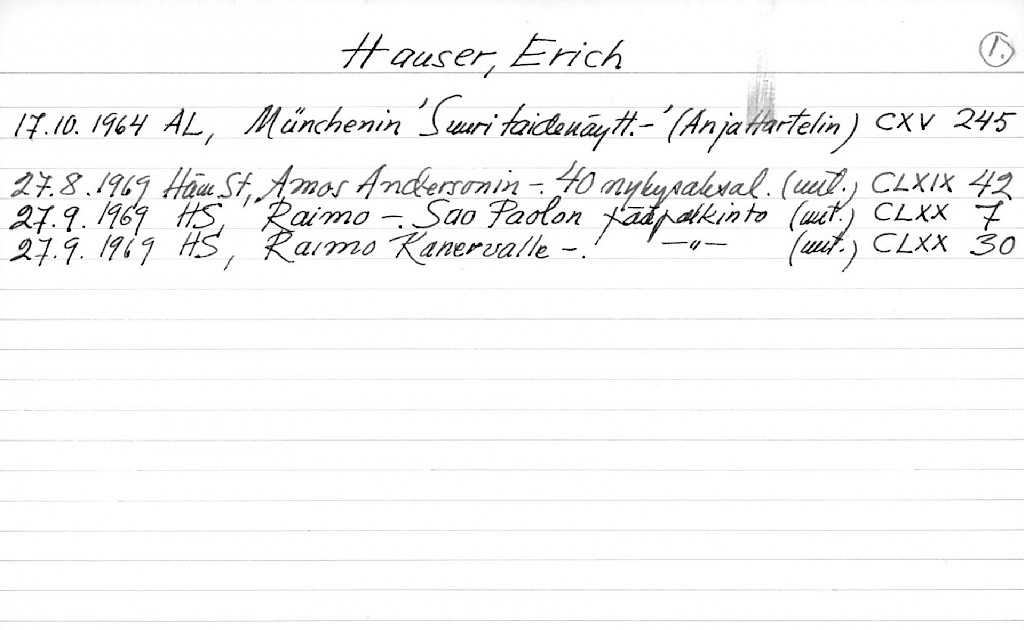 Hauser, Erich 1.
17.10.1964 AL, Münchenin 'Suuri taidenäytt.-' (Anja Hartelin) CXV 245
27.8.1969 Häm St, Amos Andersonin -. 40 nykysaksal. (uut.) CLXIX 42
27.9.1969 HS, Raimo -. Sao Paolon pääpalkinto (uut.) CLXX 7
27.9.1969 HS, Raimo Kanervalle -. —"— (uut.) CLXX 30